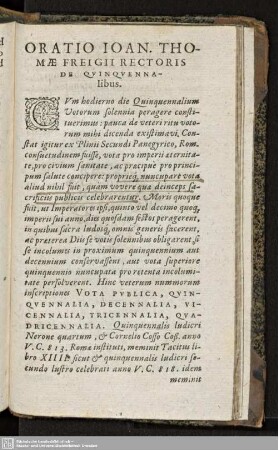 ORATIO IOAN. THO-
MÆ FREIGII RECTORIS
DE QVINQVENNA-
libus.
CVm hodierno die Quinquennalium
Votorum solennia peragere consti-
tuerimus: pauca de veteri ritu voto-
rum mihi dicenda existimavi, Con-
stat igitur ex Plinii Secundi Panegyrico, Rom.
consuetudinem fuisse, vota pro imperii æternita-
te, pro civium sanitate, ac præcipuè pro princi-
pum salute concipere: propriéq, nuncupare vota
aliud nihil fuit, quàm vovere quæ deinceps sa-
crificiis publicis celebrarentur. Moris quoque
fuit, ut Imperatores ipsi, quinto vel decimo quoq,
imperii sui anno, dies quosdam festos peragerent,
in quibus sacra ludosq, omnis generis facerent,
ac præterea Diis se votis solennibus obligarent, si
se incolumes in proximum quinquennium aut
decennium conservassent, aut vota superiore
quinquennio nuncupata pro retenta incolumi-
tate persolverent. Hinc veterum nummorum
inscriptiones VOTA PVBLICA, QVIN-
QVENNALIA, DECENNALIA, VI-
CENNALIA, TRICENNALIA, QVA-
DRICENNALIA. Quinquennalis ludicri
Nerone quartum, & Cornelio Cosso Coss. anno
V.C. 813. Romæ instituti, meminit Tacitus li-
bro XIIII. sicut & quinquennalis ludicri se-
cundo lustro celebrati anno V.C. 818. idem
meminit